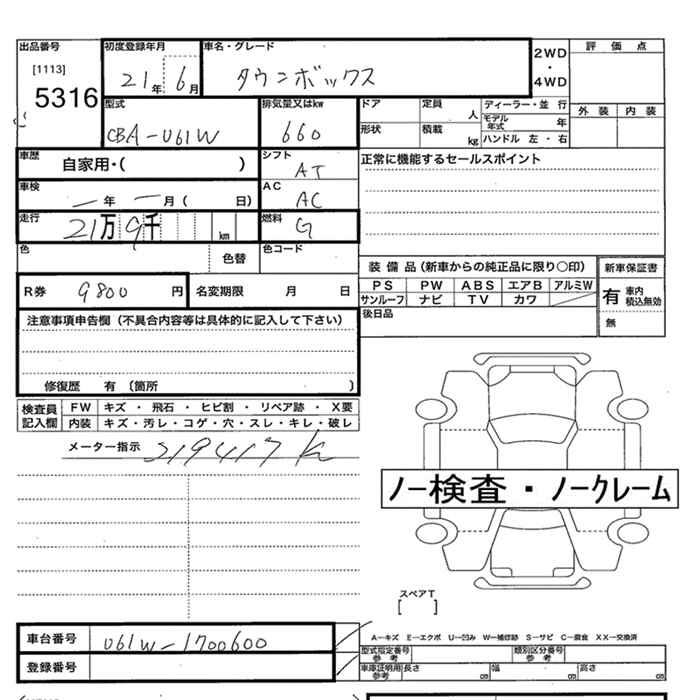 出品番号
[1113]
5316
初度登録年月
21年 6月
車名・グレード
タウンボックス
2WD
・
4WD
評価点
外装 内装
型式
CBA-U61W
排気量又はkw
660
ドア
定員 人
形状
積載 kg
ディーラー・並 行
モデル年式 年
ハンドル 左・右
車歴
自家用・( )
シフト
AT
正常に機能するセールスポイント
車検
ー年 ー月( 日)
AC
AC
走行
21万9千 km
燃料
G
色
色替
色コード
装備品(新車からの純正品に限り○印)
PS PW ABS エアB アルミW
サンルーフ ナビ TV カワ
後日品
新車保証書
有 車内積込無効
無
R券 9800 円
名変期限 月 日
注意事項申告欄(不具合内容等は具体的に記入して下さい)
修復歴 有 〔箇所 〕
検査員記入欄
FW キズ・飛石・ヒビ割・リペア跡・X要
内装 キズ・汚レ・コゲ・穴・スレ・キレ・破レ
メーター指示 219417K
ノー検査・ノークレーム
スペアT
[ ]
車台番号 U61W-1700600
登録番号
A―キズ E―エクボ U―凹み W―補修跡 S―サビ C―腐食 XX―交換済
型式指定番号 参考
類別区分番号 参考
車庫証明用 参考 長さ cm 幅 cm 高さ cm